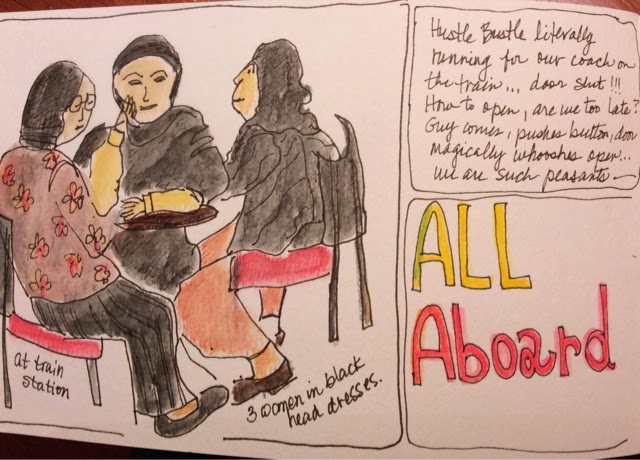 Hustle Bustle literally
running for our coach on
the train... door shut!!!
How to open, are we too late?
Guy comes, pushes button, door
magically whooshes open...
we are such peasants —
ALL
Aboard
at train
station
3 women in black
head dresses.